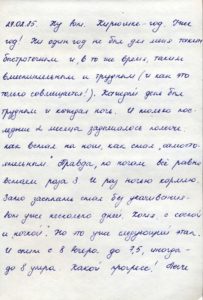 29.02.85. Ну вот. Кирюшке год. Уже
год! Ни один год не был для меня таким
быстротечным и в то же время, таким
и трудным (и как это
только совмещается!). Каждый день был
трудным и каждая ночь. И только пос-
ледние 2 месяца задышалось полегче.
как встал на ноги, как стал „самосто-
ятельным“. Правда, по ночам всё равно
встаем раза 3 и раз ночью кормлю.
Зато засыпать стал без укачивания-
вот уже несколько дней. Хотя, с соской
и „ночкой“. Но это уже следующий этап.
И спит с 8 вечера до 7,5, иногда-
до 8 утра. Какой прогресс! Весит